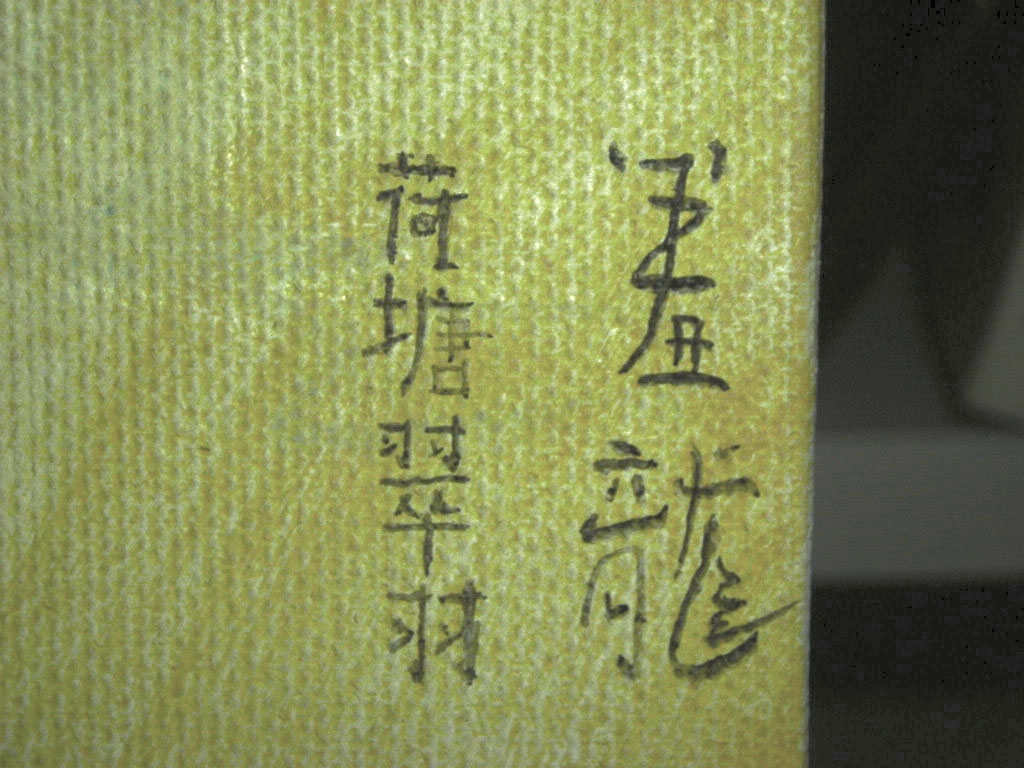 羞龍
荷塘翠羽